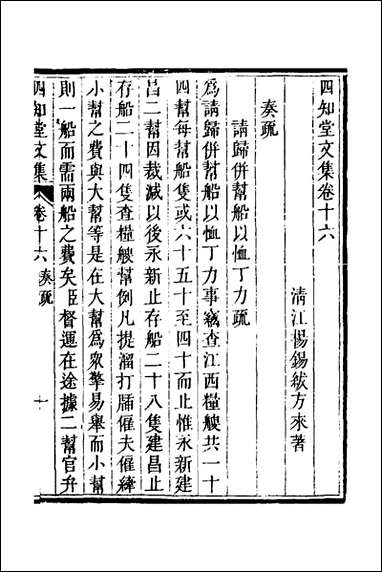 四知堂文集卷十六
清江楊錫紱方來著
奏疏
請歸併幫船以恤丁力疏
爲請歸併幫船以恤丁力事竊查江西糧艘共一十
四幫每幫船隻或六十五十至四十而止惟永新建
昌二幫因裁減以後永新止存船二十八隻建昌止
存船二十四隻查糧艘幫倒凡提溜打牐僱夫僱縴
小幫之費與大幫等是在大幫爲衆擎易舉而小幫
則一船而需兩船之費矣臣督運在途據二幫官弁
四知堂文集 卷十六 奏疏 一